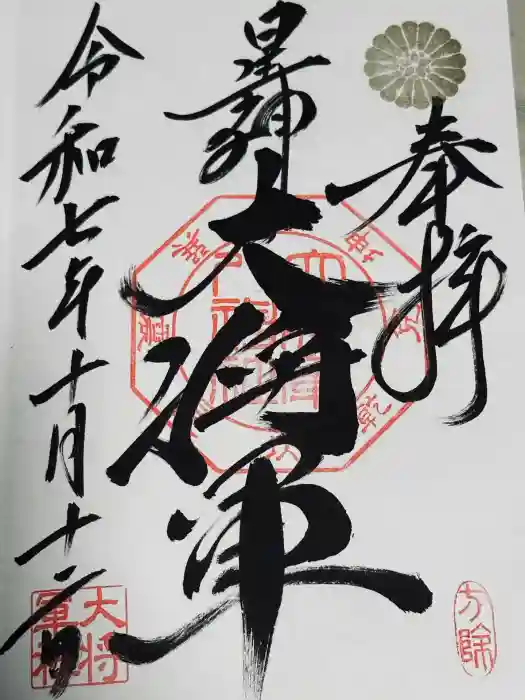 奉拝
星神
大将軍
令和七年十月十二日
大将軍社
方除